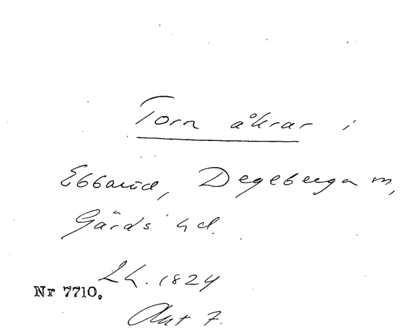 Torn åkrar i
Ebbarid, Degeberga m,
Gärds hd.
Lh. 1824
Nr 7710.
Akt 7.